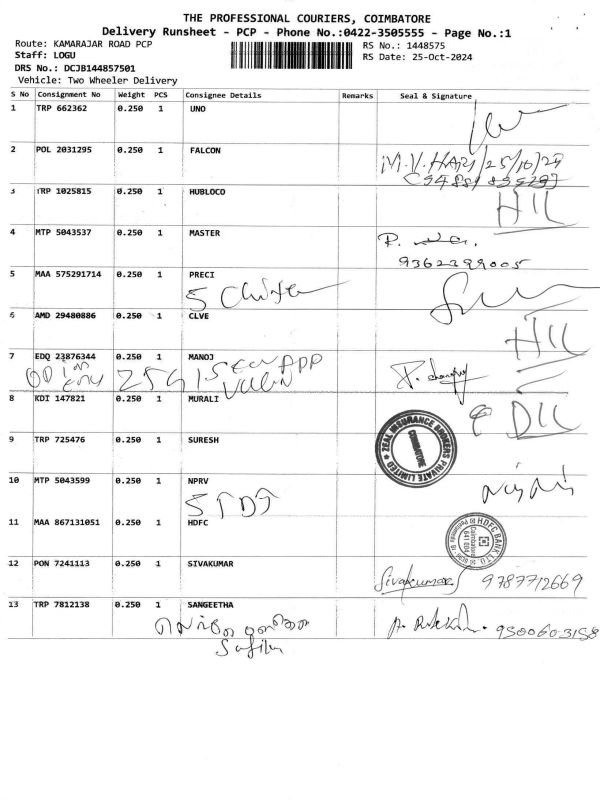 THE PROFESSIONAL COURIERS, COIMBATORE
Delivery Runsheet - PCP - Phone No.:0422-3505555 - Page No.:1
Route: KAMARAJAR ROAD PCP
RS No.: 1448575
Staff: LOGU
RS Date: 25-Oct-2024
DRS No.: DCJB144857501
Vehicle: Two Wheeler Delivery
S No Consignment No Weight PCS Consignee Details Remarks Seal & Signature
1 TRP 662362 0.250 1 UNO
2 POL 2031295 0.250 1 FALCON
M.V. HARI/25/10/24
3 TRP 1025815 0.250 1 HUBLOCO
HIL
4 MTP 5043537 0.250 1 MASTER
9362399005
5 MAA 575291714 0.250 1 PRECI
6 AMD 29480886 0.250 1 CLVE
HIL
7 EDQ 23876344 0.250 1 MANOJ
8 KDI 147821 0.250 1 MURALI
9 TRP 725476 0.250 1 SURESH
ZEAL INSURANCE BROKERS PRIVATE LIMITED
COIMBATORE
10 MTP 5043599 0.250 1 NPRV
11 MAA 867131051 0.250 1 HDFC
HDFC BANK LTD.
12 PON 7241113 0.250 1 SIVAKUMAR
Sivakumar 9787712669
13 TRP 7812138 0.250 1 SANGEETHA
9500603158